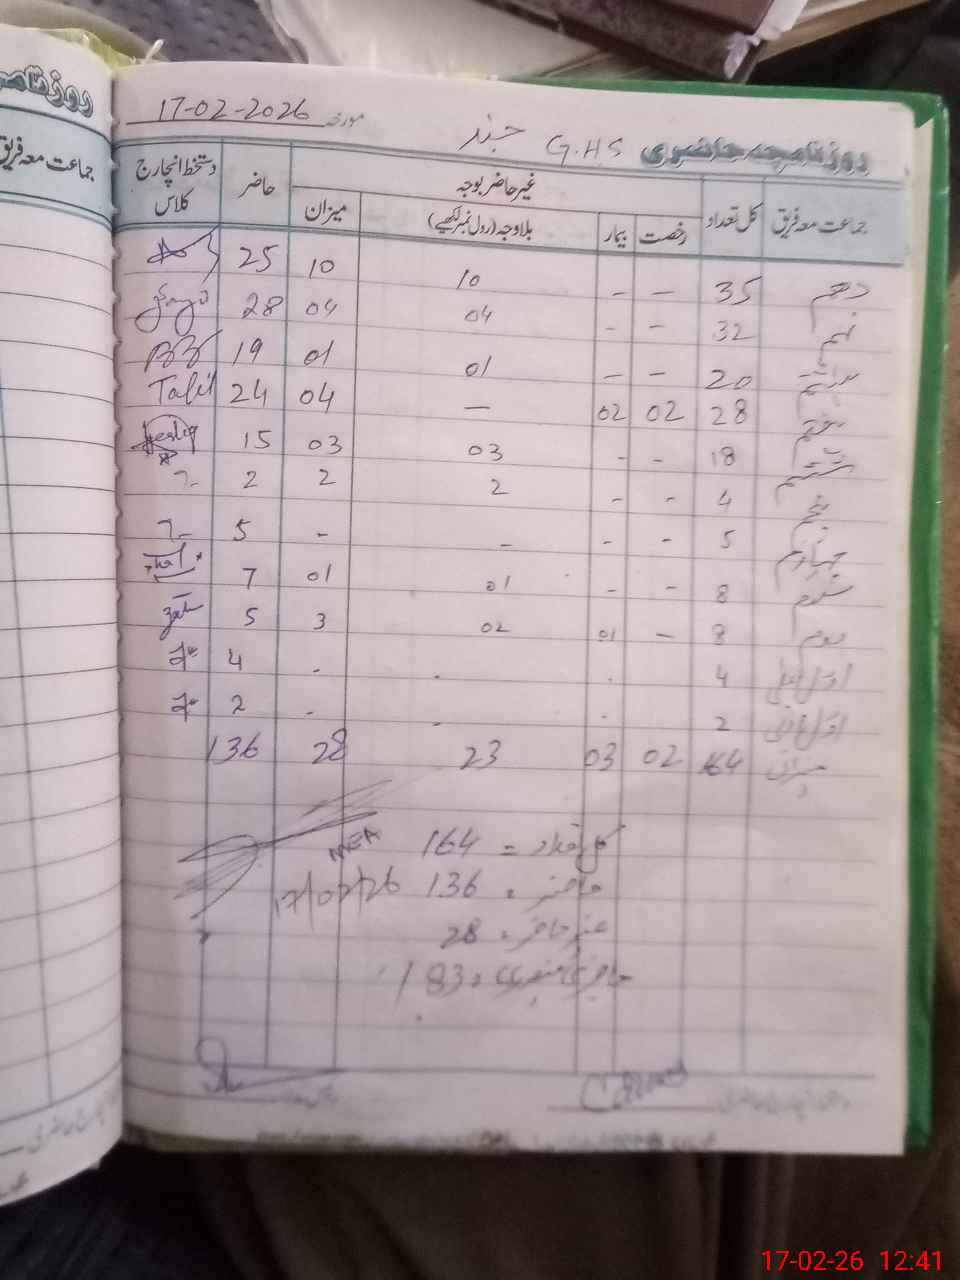 روزنامچہ حاضری G.H.S جنڈ مورخہ 17-02-2026
جماعت معہ فریق کل تعداد غیر حاضر بوجہ حاضر دستخط انچارج کلاس
رخصت بیمار بلاوجہ (رول نمبر لکھیے) میزان
دہم 35 – – 10 10 25
نہم 32 – – 04 04 28
ہشتم 20 – – 01 01 19
ہفتم 28 02 02 — 04 24
ششم 18 – – 03 03 15
پنجم 4 – – 2 2 2
چہارم 5 – – – – 5
سوئم 8 – – 01 01 7
دوم 8 – 01 02 3 5
اول اعلیٰ 4 . . . 4
اول ادنیٰ 2 . . . 2
میزان 164 02 03 23 28 136
کل تعداد = 164
MEA
حاضر = 136
17/02/26
غیر حاضر = 28
حاضری فیصدی = 83
روزنامچہ
جماعت معہ فریق
17-02-26 12:41